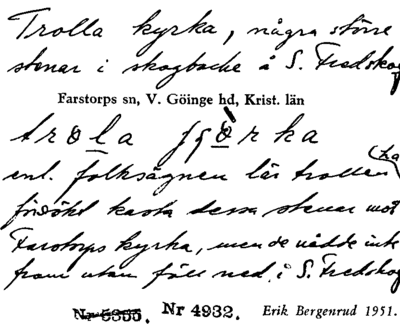 Trolla kyrka, några större
stenar i skogbacke å S. Fredskog
Farstorps sn, V. Göinge hd, Krist. län
enl. folksägnen lär trollen ha
försökt kasta dessa stenar mot
Farstorps kyrka, men de nådde inte
fram utan föll ned i S. Fredskog
Nr 5355. Nr 4932. Erik Bergenrud 1951.